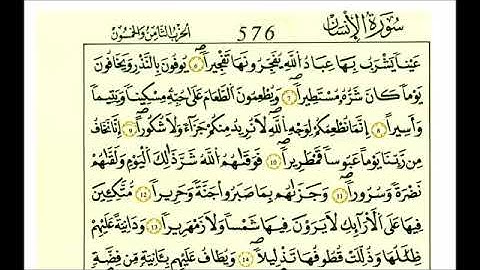 سُورَةُ الْإِنسَانِ 576 الحزب الثامن والخمسون
عَيْناً يَشْرَبُ بِهَا عِبَادُ اللَّهِ يُفَجِّرُونَهَا تَفْجِيراً ٦ يُوفُونَ بِالنَّذْرِ وَيَخَافُونَ
يَوْماً كَانَ شَرُّهُ مُسْتَطِيراً ٧ وَيُطْعِمُونَ الطَّعَامَ عَلَىٰ حُبِّهِ مِسْكِيناً وَيَتِيماً
وَأَسِيراً ٨ إِنَّمَا نُطْعِمُكُمْ لِوَجْهِ اللَّهِ لَا نُرِيدُ مِنكُمْ جَزَآءً وَلَا شُكُوراً ٩ إِنَّا نَخَافُ
مِن رَّبِّنَا يَوْماً عَبُوساً قَمْطَرِيراً ١٠ فَوَقَىٰهُمُ اللَّهُ شَرَّ ذَٰلِكَ الْيَوْمِ وَلَقَّىٰهُمْ
نَضْرَةً وَسُرُوراً ١١ وَجَزَىٰهُم بِمَا صَبَرُوا جَنَّةً وَحَرِيراً ١٢ مُتَّكِـِٔينَ
فِيهَا عَلَى الْأَرَآئِكِ لَا يَرَوْنَ فِيهَا شَمْساً وَلَا زَمْهَرِيراً ١٣ وَدَانِيَةً عَلَيْهِمْ
ظِلَٰلُهَا وَذُلِّلَتْ قُطُوفُهَا تَذْلِيلاً ١٤ وَيُطَافُ عَلَيْهِم بِـَٔانِيَةٍ مِّن فِضَّةٍ